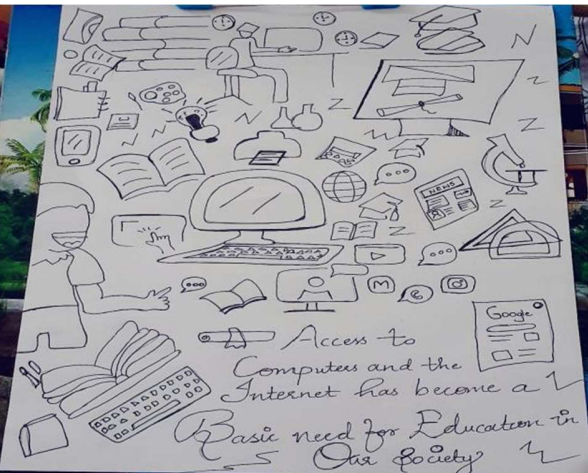 NEWS
M
Google
Access to
Computers and the
Internet has become a
Basic need for Education in
Our Society